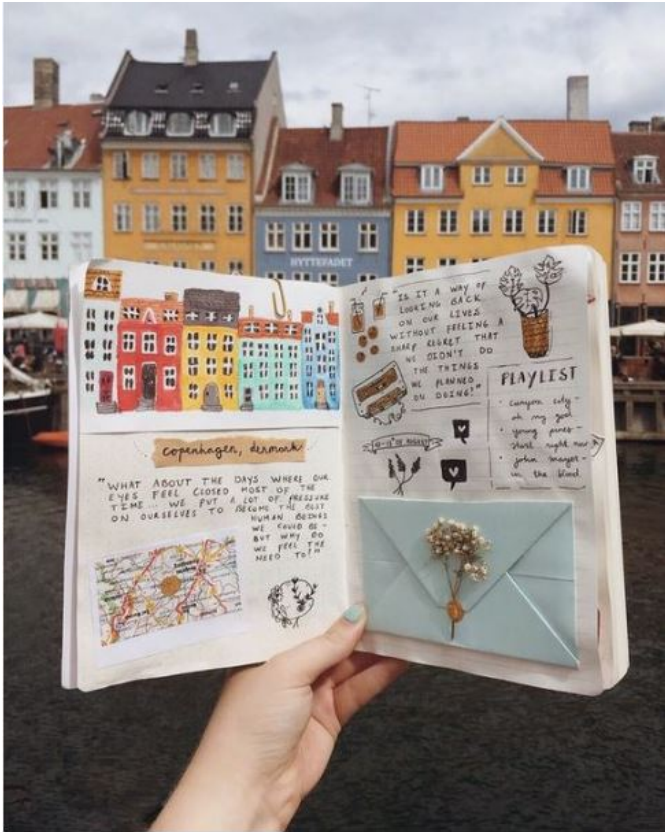 HYTTEFADET
copenhagen, denmark
"WHAT ABOUT THE DAYS WHERE OUR
EYES FEEL CLOSED MOST OF THE
TIME... WE PUT A LOT OF PRESSURE
ON OURSELVES TO BECOME THE BEST
HUMAN BEINGS
WE COULD BE -
BUT WHY DO
WE FEEL THE
NEED TO?"
"IS IT A WAY OF
LOOKING BACK
ON OUR LIVES
WITHOUT FEELING A
SHARP REGRET THAT
WE DIDN'T DO
THE THINGS
WE PLANNED
ON DOING!"
OF AUGUST
PLAYLIST
• canyon city -
oh my god
• young pines -
start right now
• john mayer -
in the blood